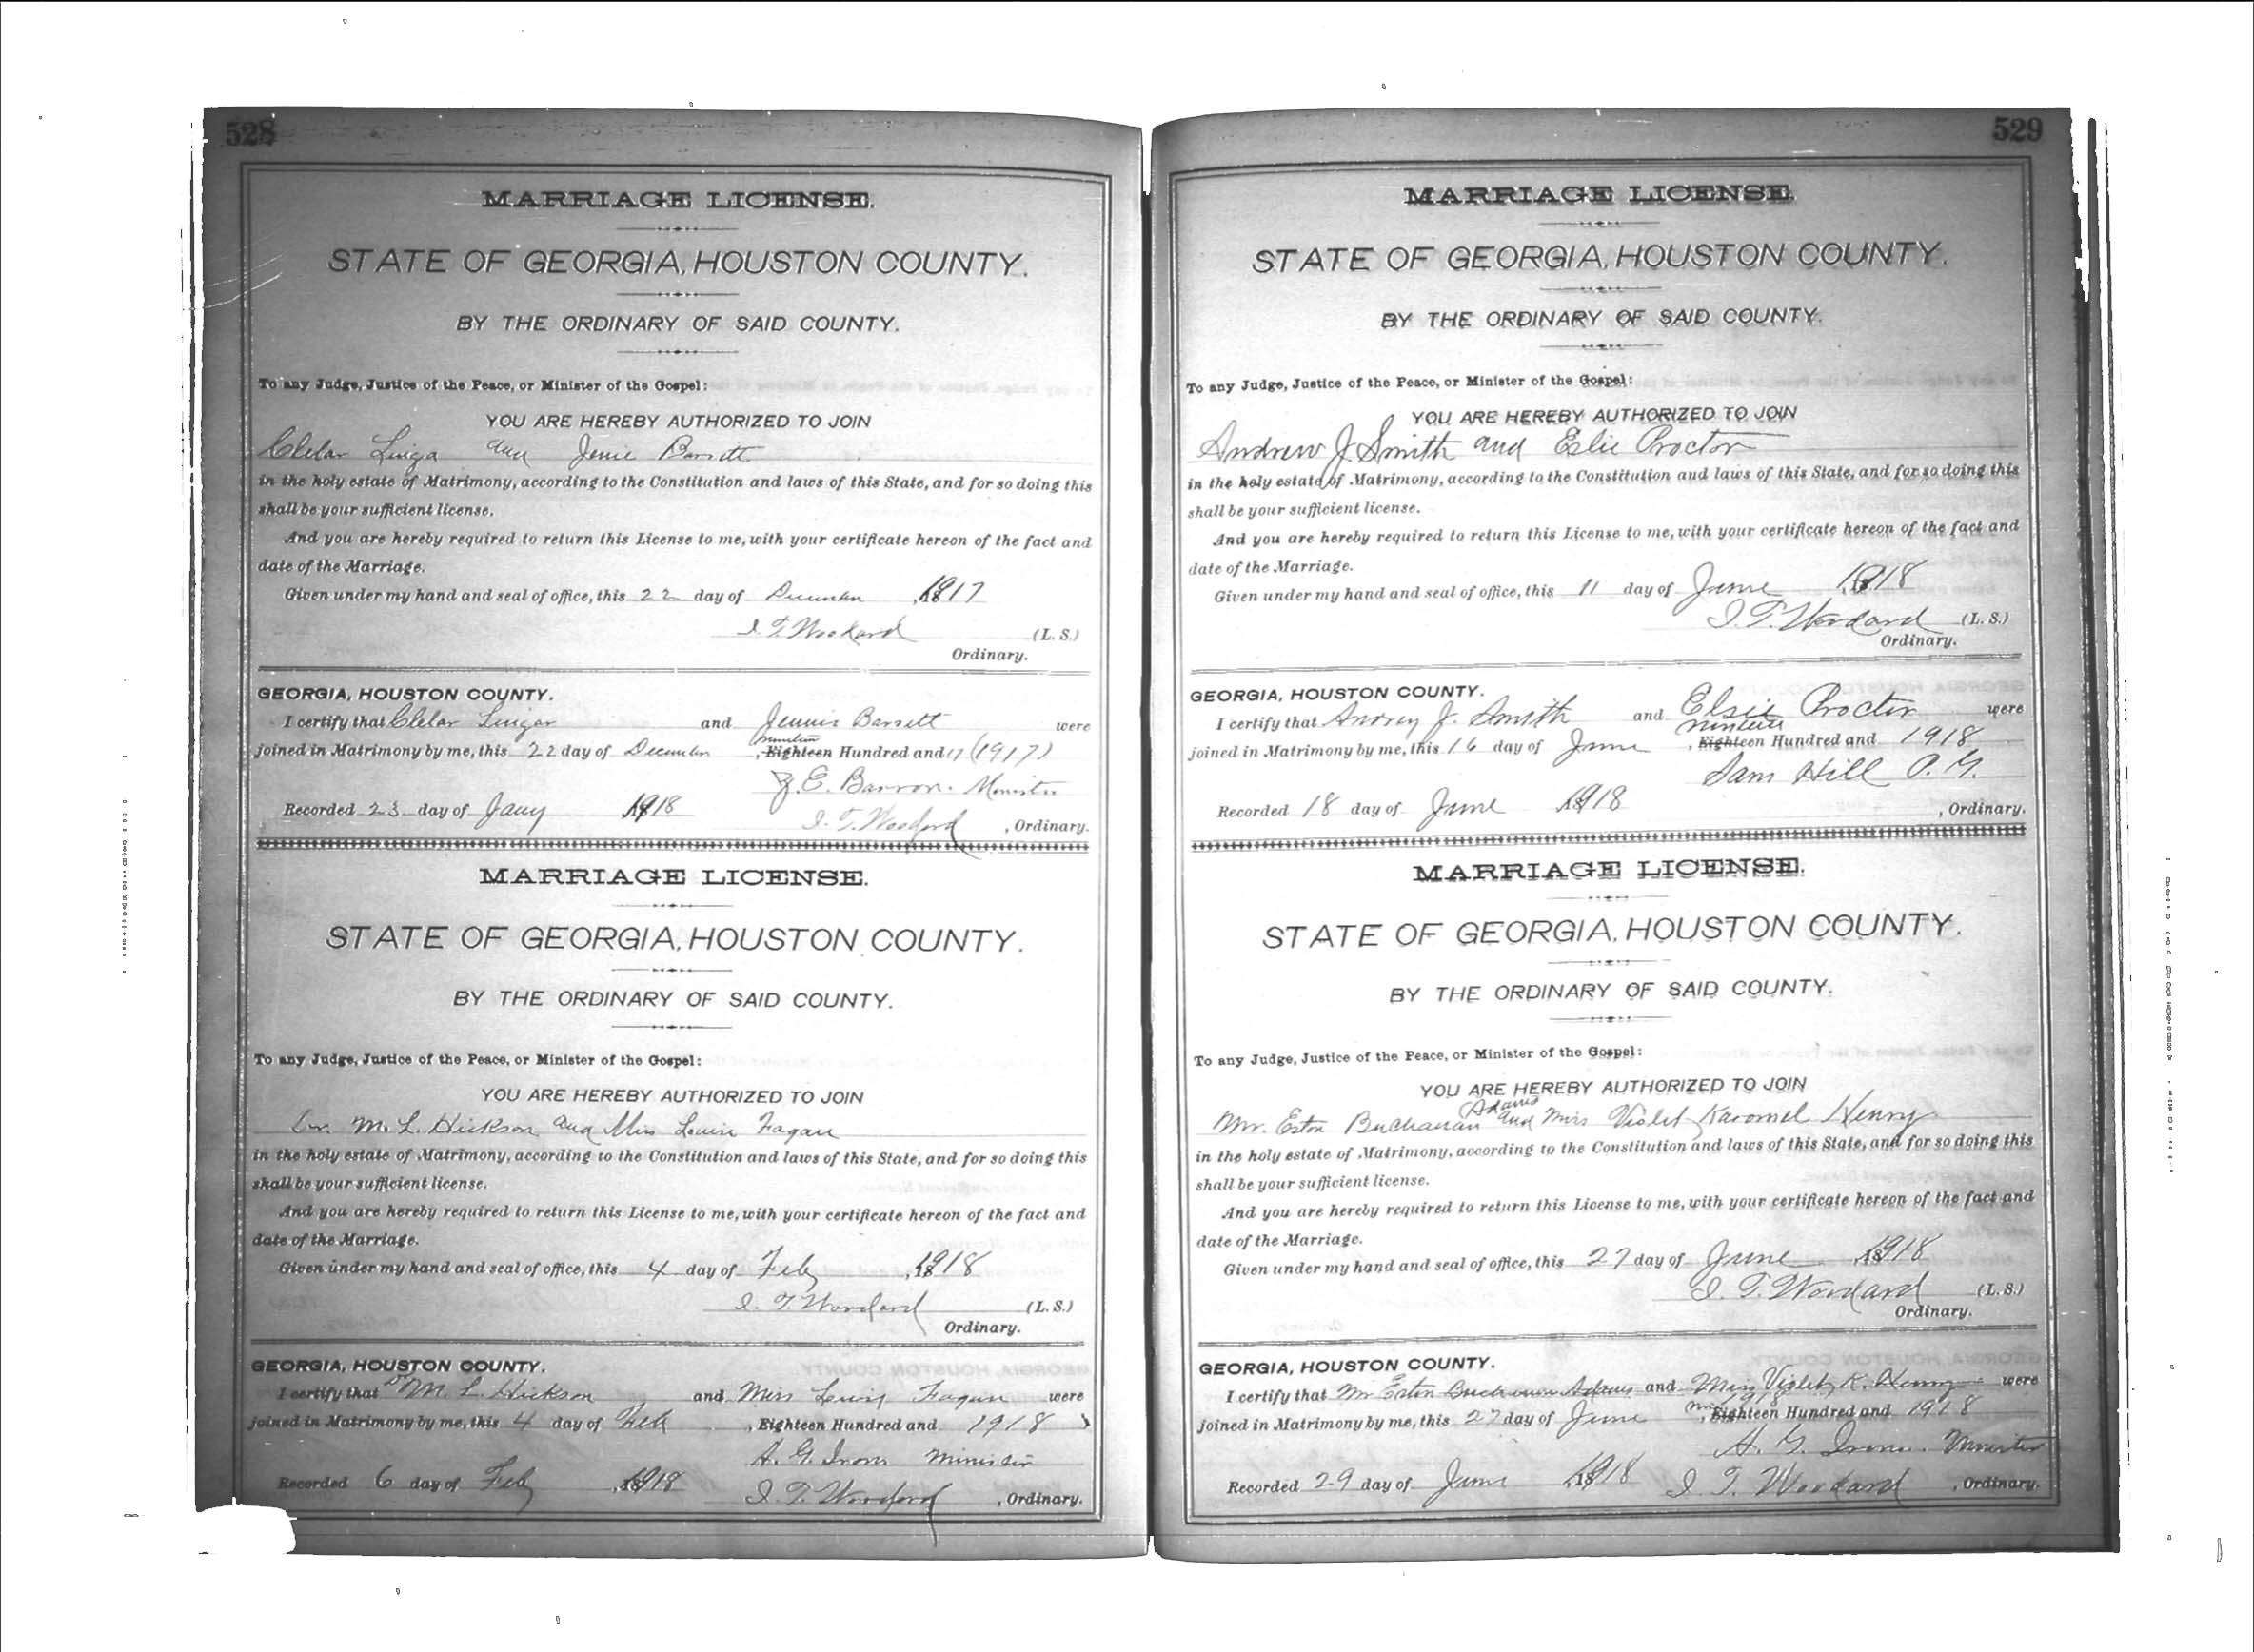 528
MARRIAGE LICENSE.
STATE OF GEORGIA, HOUSTON COUNTY.
BY THE ORDINARY OF SAID COUNTY.
To any Judge, Justice of the Peace, or Minister of the Gospel:
YOU ARE HEREBY AUTHORIZED TO JOIN
Jennie Barrett
in the holy estate of Matrimony, according to the Constitution and laws of this State, and for so doing this
shall be your sufficient license.
And you are hereby required to return this License to me, with your certificate hereon of the fact and
date of the Marriage.
Given under my hand and seal of office, this 22 day of December , 1917
I. T. Woodard (L. S.)
Ordinary.
GEORGIA, HOUSTON COUNTY.
I certify that and Jennie Barrett were
joined in Matrimony by me, this 22 day of December , Eighteen nineteen Hundred and 17 (1917)
E. Barron. Minister
Recorded 23 day of Jany 1918
I. T. Woodard , Ordinary.
MARRIAGE LICENSE.
STATE OF GEORGIA, HOUSTON COUNTY.
BY THE ORDINARY OF SAID COUNTY.
To any Judge, Justice of the Peace, or Minister of the Gospel:
YOU ARE HEREBY AUTHORIZED TO JOIN
M. L. Hickson and Miss Louise Fagan
in the holy estate of Matrimony, according to the Constitution and laws of this State, and for so doing this
shall be your sufficient license.
And you are hereby required to return this License to me, with your certificate hereon of the fact and
date of the Marriage.
Given under my hand and seal of office, this 4 day of Feby , 1918
I. T. Woodard (L. S.)
Ordinary.
GEORGIA, HOUSTON COUNTY.
I certify that M. L. Hickson and Miss Fagan were
joined in Matrimony by me, this 4 day of Feb , Eighteen Hundred and 1918
A. G. Minister
Recorded 6 day of Feby , 1918
I. T. Woodard , Ordinary.
529
MARRIAGE LICENSE.
STATE OF GEORGIA, HOUSTON COUNTY.
BY THE ORDINARY OF SAID COUNTY.
To any Judge, Justice of the Peace, or Minister of the Gospel:
YOU ARE HEREBY AUTHORIZED TO JOIN
Andrew J. Smith and Elsie Proctor
in the holy estate of Matrimony, according to the Constitution and laws of this State, and for so doing this
shall be your sufficient license.
And you are hereby required to return this License to me, with your certificate hereon of the fact and
date of the Marriage.
Given under my hand and seal of office, this 11 day of June , 1918
I. T. Woodard (L. S.)
Ordinary.
GEORGIA, HOUSTON COUNTY.
I certify that J. Smith and Elsie Proctor were
joined in Matrimony by me, this 16 day of June , Eighteen nineteen Hundred and 1918
Sam Hill
Recorded 18 day of June 1918
, Ordinary.
MARRIAGE LICENSE.
STATE OF GEORGIA, HOUSTON COUNTY.
BY THE ORDINARY OF SAID COUNTY.
To any Judge, Justice of the Peace, or Minister of the Gospel:
YOU ARE HEREBY AUTHORIZED TO JOIN
Mr. Eston Buchanan Adams and Miss Violet Henry
in the holy estate of Matrimony, according to the Constitution and laws of this State, and for so doing this
shall be your sufficient license.
And you are hereby required to return this License to me, with your certificate hereon of the fact and
date of the Marriage.
Given under my hand and seal of office, this 27 day of June , 1918
I. T. Woodard (L. S.)
Ordinary.
GEORGIA, HOUSTON COUNTY.
I certify that Mr Eston Buchanan Adams and Miss Violet K. Henry were
joined in Matrimony by me, this 27 day of June , Eighteen Hundred and 1918
A. G. Minister
Recorded 29 day of June , 1918
I. T. Woodard , Ordinary.